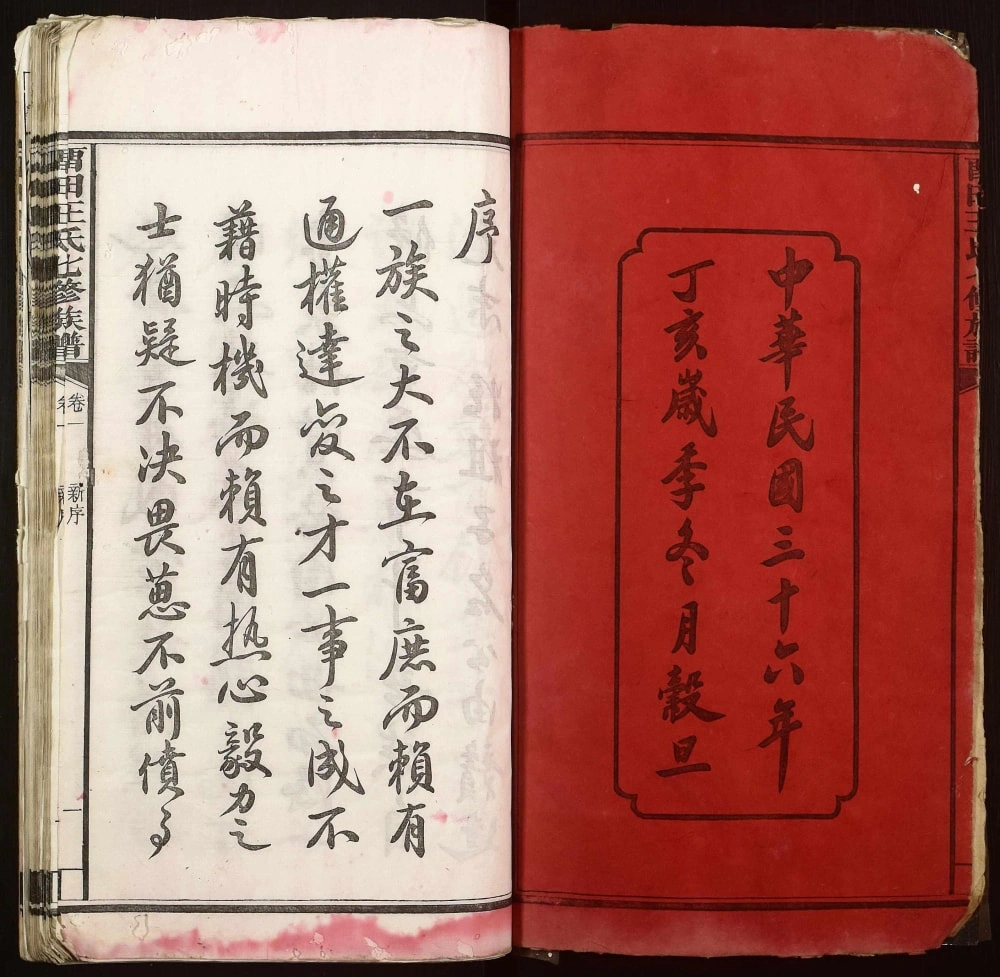 中華民國三十六年
丁亥嵗季冬月穀旦
序
一族之大不在富庶而賴有
通權達變之才一事之成不
藉時機而賴有热心毅力之
士猶疑不决畏葸不前僨事
曹田王氏七修族譜
卷一
新序
一